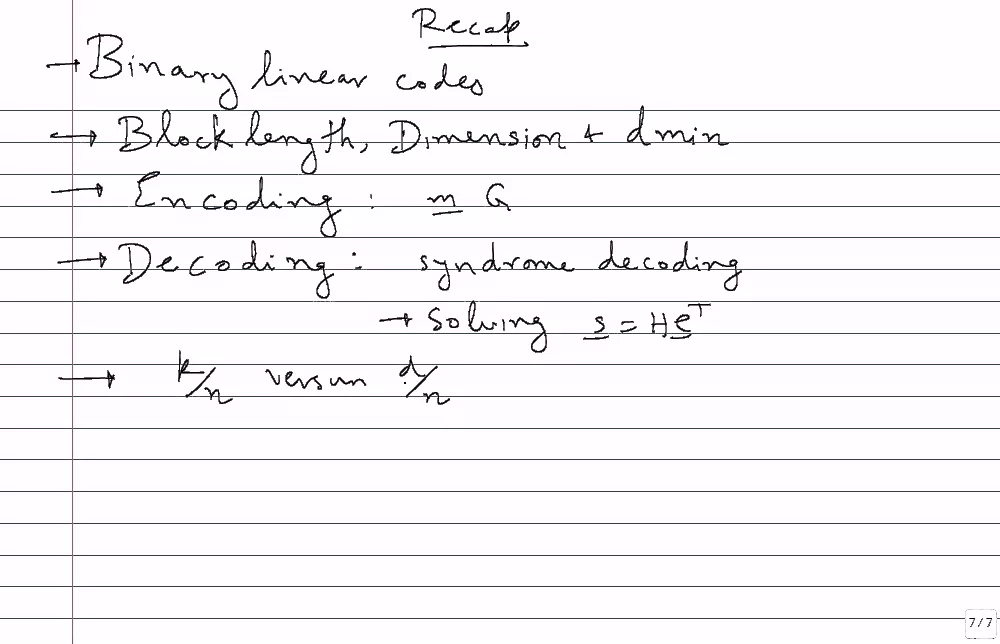 Recap
→ Binary linear codes
→ Block length, Dimension + dmin
→ Encoding : m G
→ Decoding : syndrome decoding
→ Solving s = He^T
→ k/n versus d/n
7/7